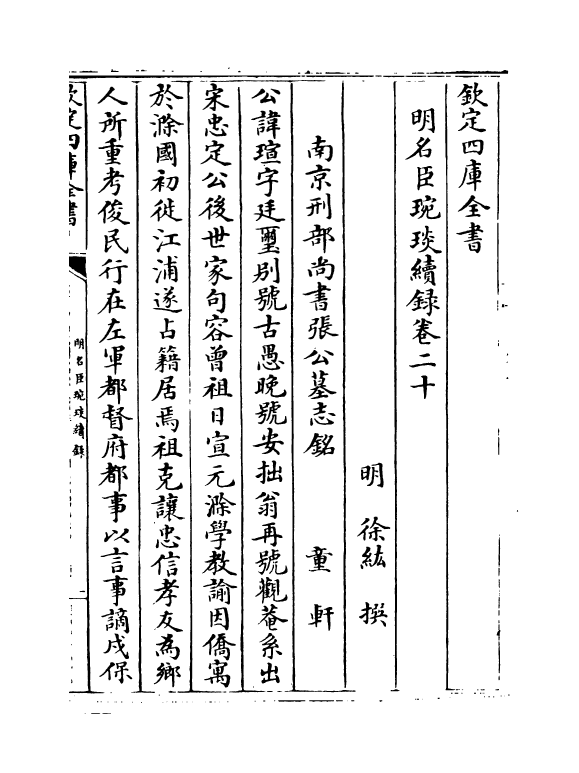 欽定四庫全書
明名臣琬琰續録卷二十
明 徐紘 撰
南京刑部尚書張公墓志銘 童軒
公諱瑄字廷璽别號古愚晚號安拙翁再號觀菴系出
宋忠定公後世家句容曾祖日宣元滁學教諭因僑寓
於滁國初徙江浦遂占籍居焉祖克讓忠信孝友為鄉
人所重考俊民行在左軍都督府都事以言事謫戍保
欽定四庫全書
明名臣琬琰續録